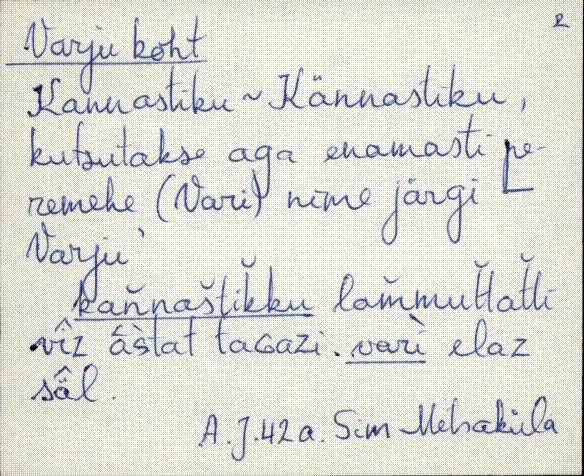 2
Varju koht
Kannastiku ~ Kännastiku,
kutsutakse aga enamasti pe-
remehe (Vari) nime järgi
Varju'
kaňnaštĭkku laňmutťatťi
vîz âštat taɢazi. varì elaz
sä̂l.
A.J.42a. Sim Metsaküla